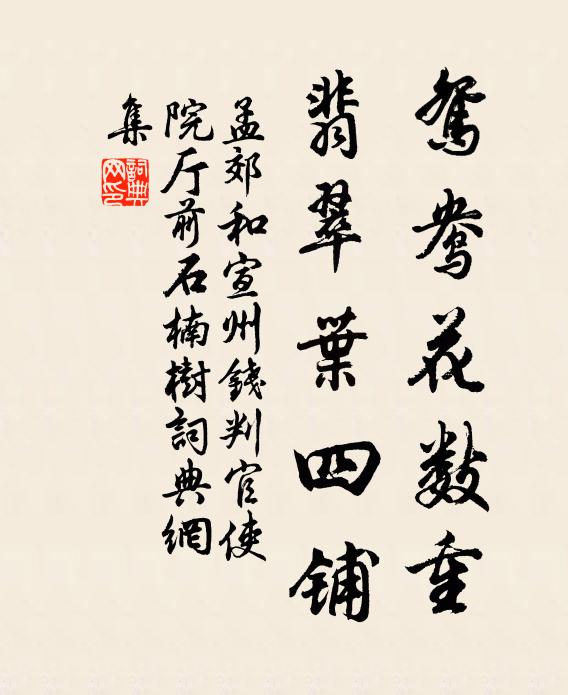 鸳鸯花数重
翡翠葉四铺
孟郊和宣州錢判官使
院厅前石楠樹詞典網
集
詞典
网印